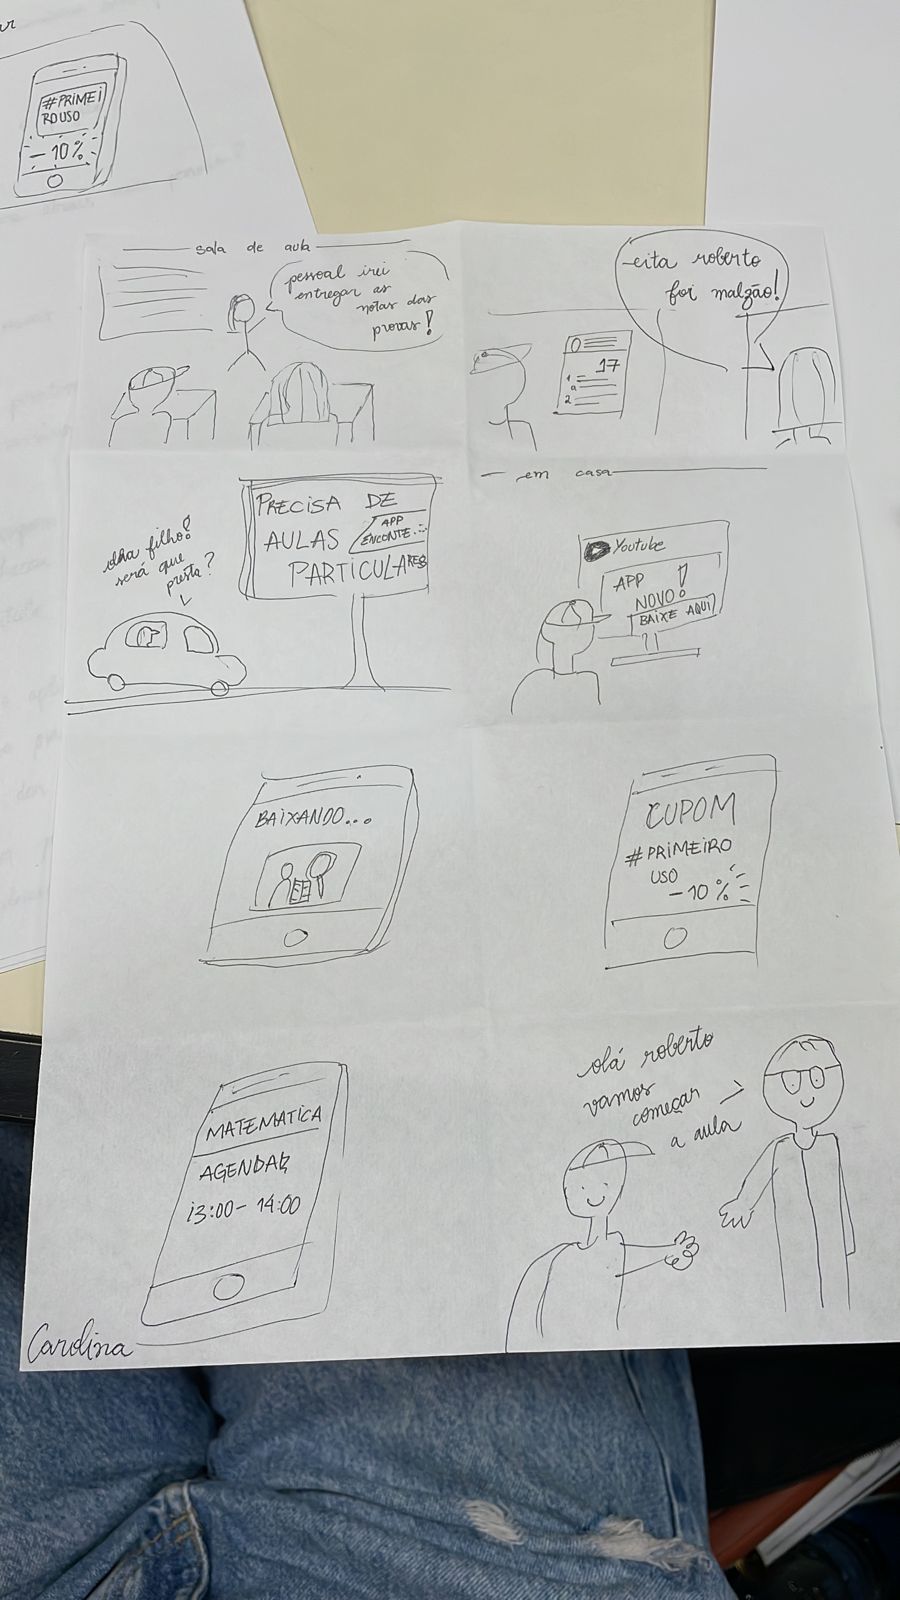 #PRIMEI
ROUSO
- 10%
sala de aula
pessoal irei
entregar as
notas das
provas!
eita roberto
foi malzão!
17
1
2
PRECISA DE
AULAS
APP
ENCONTE...
PARTICULARES
olha filho!
será que
presta?
em casa
Youtube
APP
NOVO!
BAIXE AQUI
BAIXANDO...
CUPOM
#PRIMEIRO
USO
-10%
MATEMATICA
AGENDAR
13:00 - 14:00
olá roberto
vamos
começar
a aula
Carolina